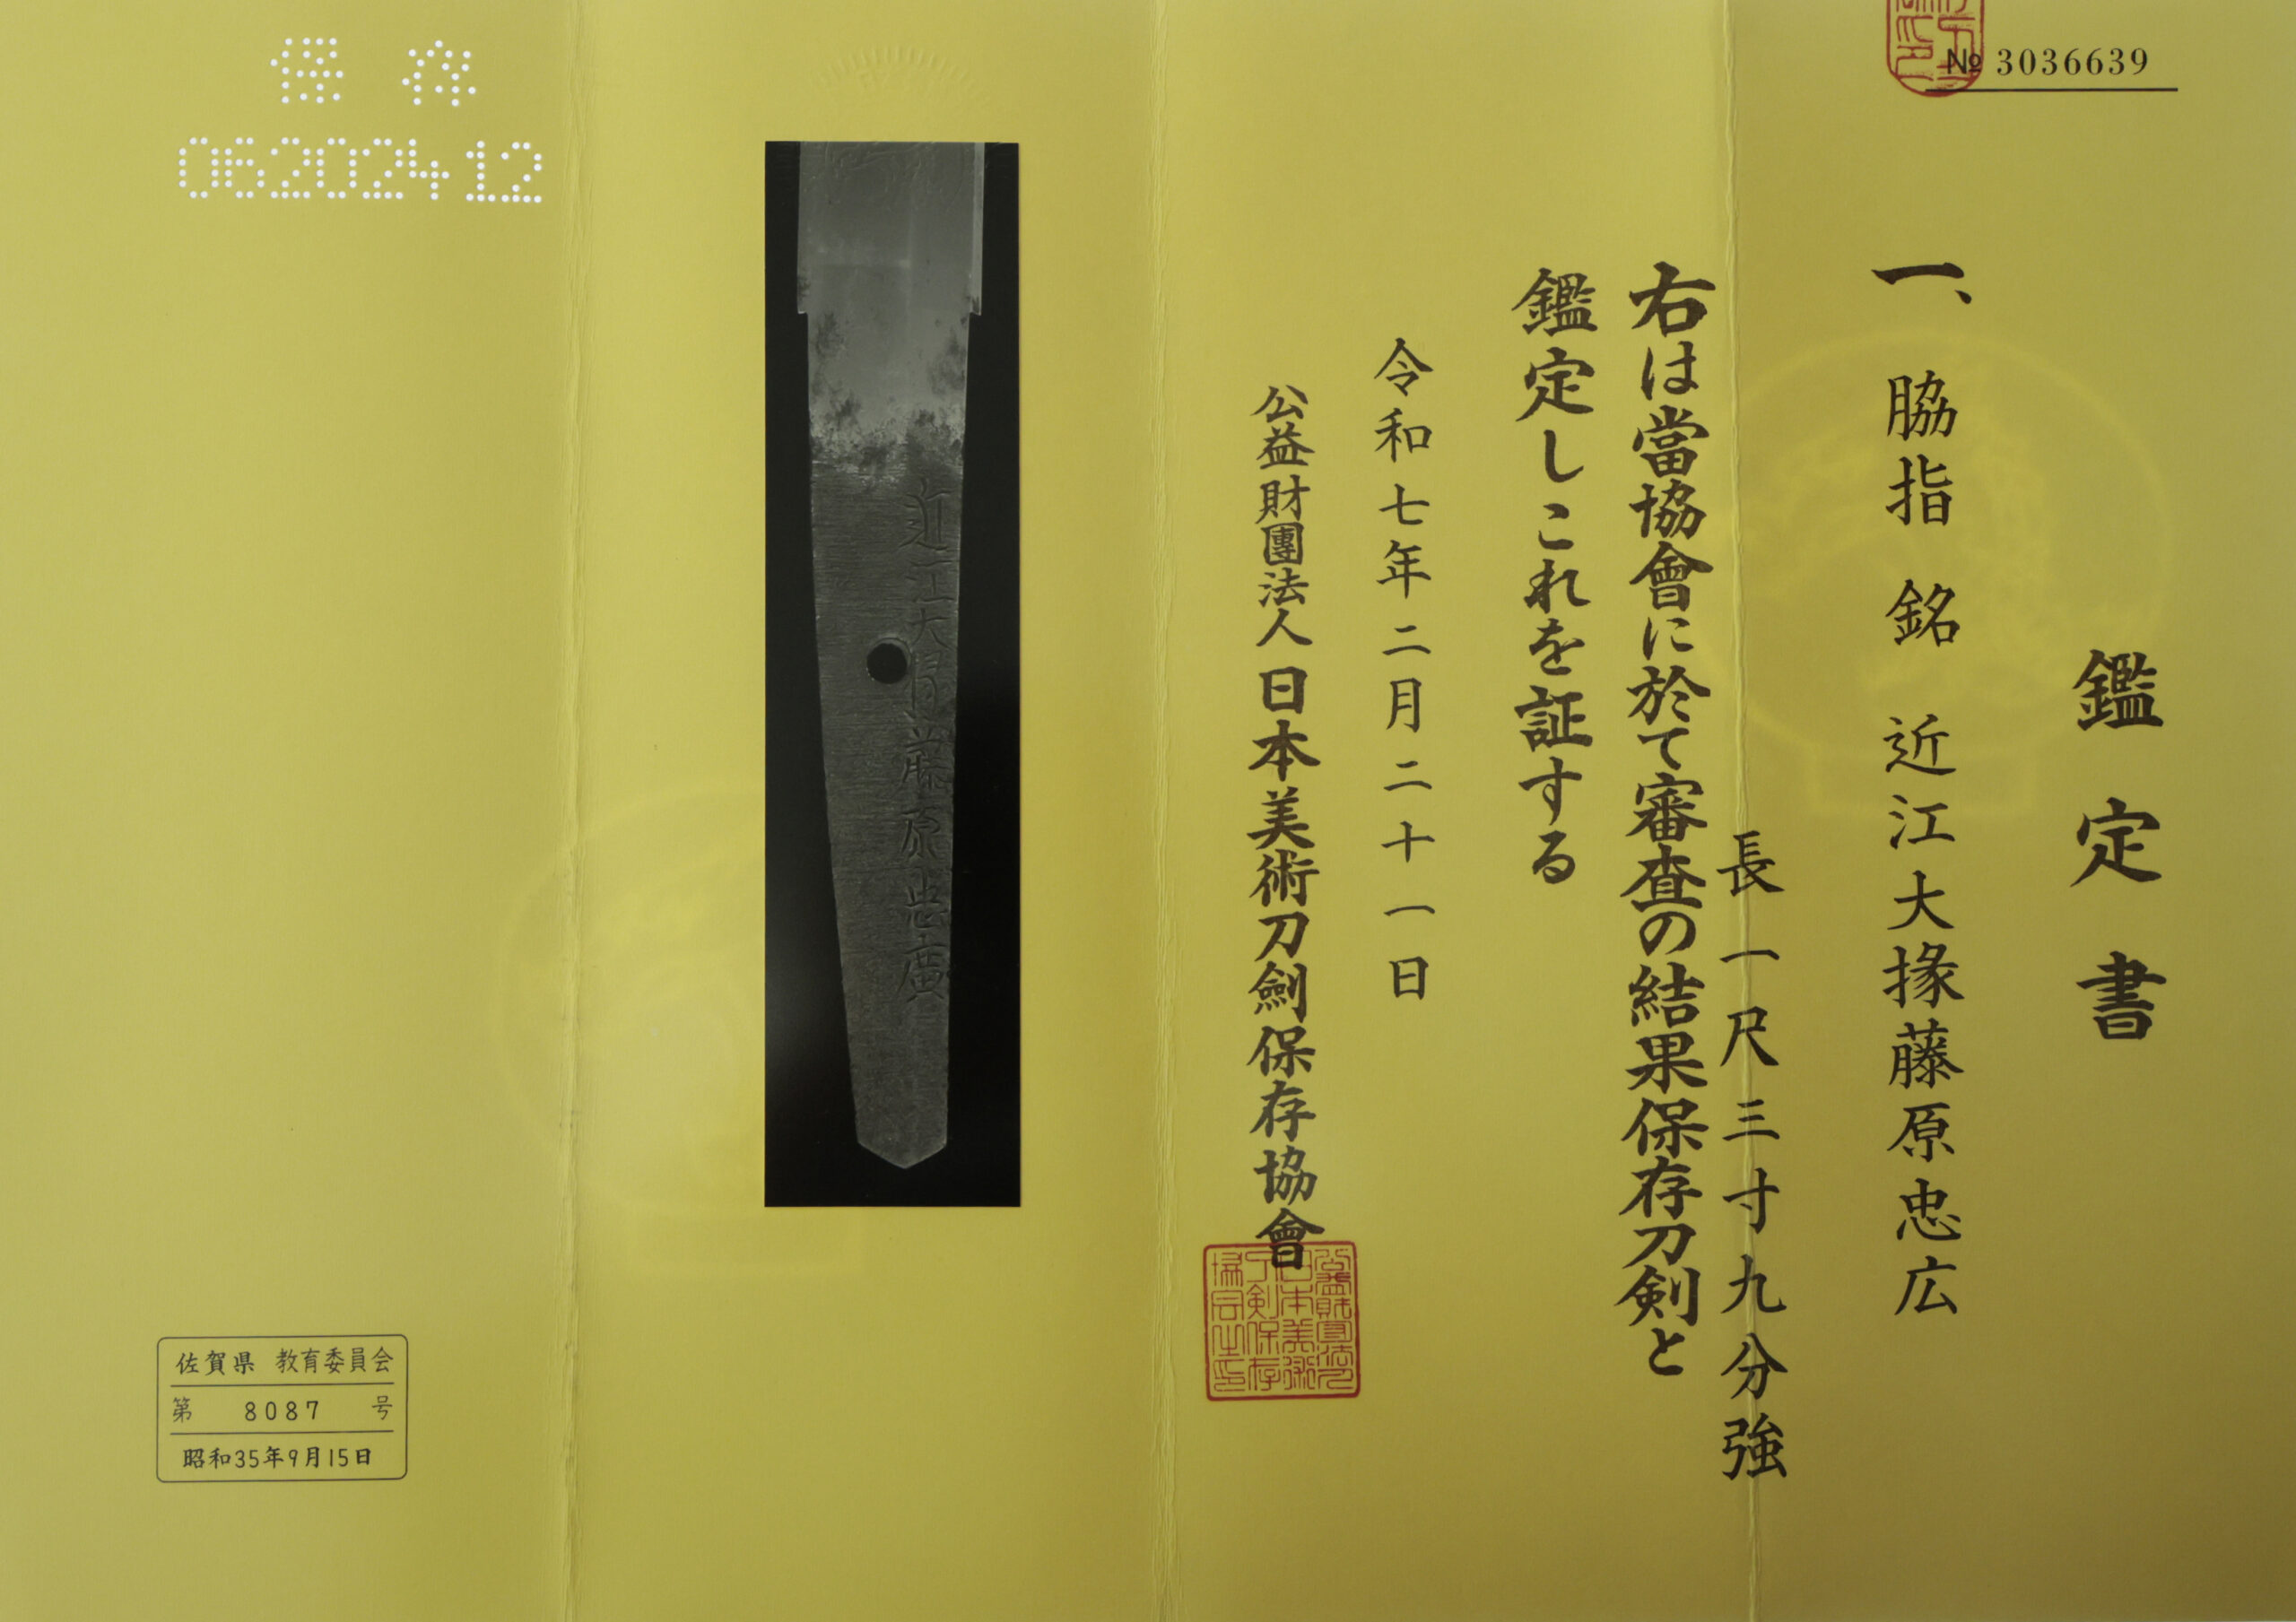 № 3036639
鑑定書
一、脇指 銘 近江大掾藤原忠広
長一尺三寸九分強
右は當協會に於て審査の結果保存刀剣と
鑑定しこれを証する
令和七年二月二十一日
公益財團法人日本美術刀劍保存協會
近江大掾藤原忠廣
保存
06202412
佐賀県 教育委員会
第 8087 号
昭和35年9月15日